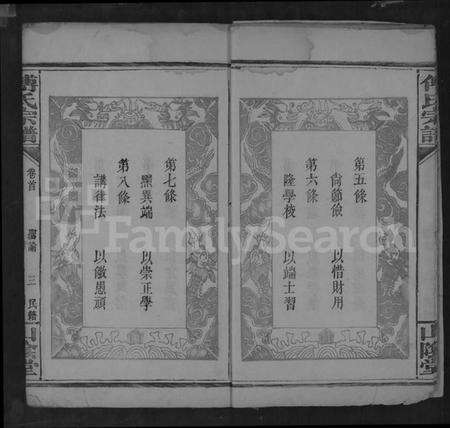 傅氏宗譜
第五條
尙節儉 以惜財用
第六條
隆學校 以端士習
山陰堂
第七條
黜異端 以崇正學
第八條
講律法 以儆愚頑
傅氏宗譜
卷首
聖諭
三
民籍
山陰堂
FamilySearch